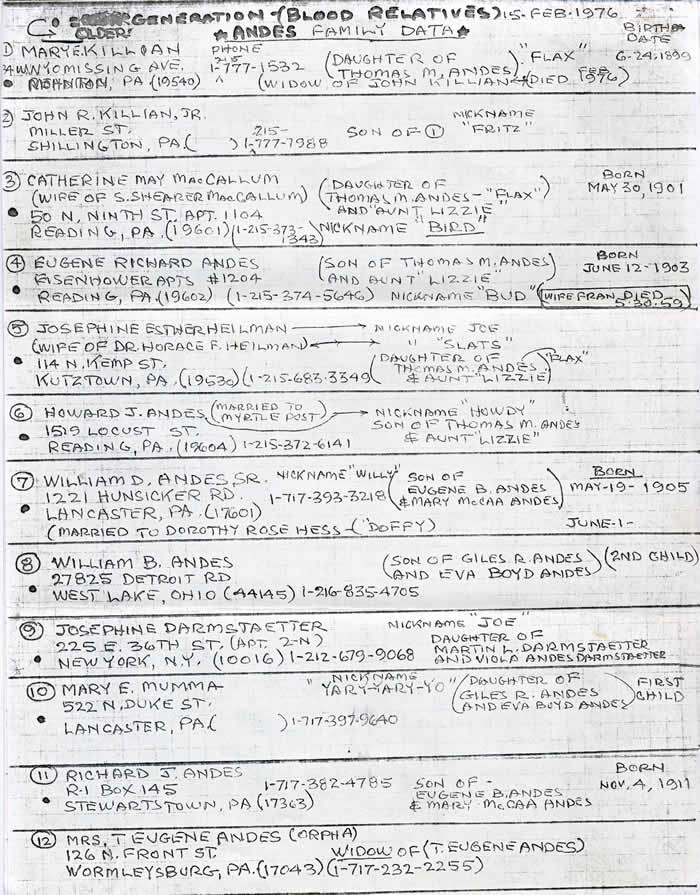 GENERATION-(BLOOD RELATIVES) 15-FEB-1976
OLDER! ★ANDES FAMILY DATA★ BIRTH DATE
1) MARY E. KILLIAN PHONE (DAUGHTER OF "FLAX" 6-24-1899
WYOMISSING AVE. 215-1-777-1532 THOMAS M. ANDES)
MOHNTON, PA (19540) (WIDOW OF JOHN KILLIAN (DIED FEB 1976)
② JOHN R. KILLIAN, JR. NICKNAME
MILLER ST. 215- SON OF ① "FRITZ"
SHILLINGTON, PA ( ) 1-777-7988
③ CATHERINE MAY MacCALLUM (DAUGHTER OF BORN
(WIFE OF S. SHEARER MacCALLUM) THOMAS M. ANDES-"FLAX" MAY 30, 1901
• 50 N. NINTH ST. APT. 1104 AND "AUNT LIZZIE"
READING, PA. (19601) (1-215-373-1343) NICKNAME "BIRD"
④ EUGENE RICHARD ANDES (SON OF THOMAS M. ANDES) BORN
EISENHOWER APTS #1204 AND AUNT "LIZZIE") JUNE 12-1903
• READING, PA. (19602) (1-215-374-5646) NICKNAME "BUD" (WIFE FRAN DIED 5-30-59)
⑤ JOSEPHINE ESTHER HEILMAN → NICKNAME JOE
(WIFE OF DR. HORACE F. HEILMAN) ↔ " "SLATS"
• 114 N. KEMP ST. (DAUGHTER OF "FLAX"
KUTZTOWN, PA. (19530) (1-215-683-3349) THOMAS M. ANDES & AUNT "LIZZIE")
⑥ HOWARD J. ANDES (MARRIED TO MYRTLE POST) → NICKNAME "HOWDY"
• 1519 LOCUST ST. SON OF THOMAS M. ANDES
READING, PA. (19604) 1-215-372-6141 & AUNT "LIZZIE"
⑦ WILLIAM D. ANDES, SR. NICKNAME "WILLY" (SON OF BORN
1221 HUNSICKER RD. 1-717-393-3218 EUGENE B. ANDES MAY-19-1905
• LANCASTER, PA. (17601) & MARY McCAA ANDES)
(MARRIED TO DOROTHY ROSE HESS-("DOFFY) JUNE-1-
⑧ WILLIAM B. ANDES (SON OF GILES R. ANDES) (2ND CHILD)
27825 DETROIT RD. AND EVA BOYD ANDES)
• WEST LAKE, OHIO (44145) 1-216-835-4705
⑨ JOSEPHINE DARMSTAETTER NICKNAME "JOE"
225 E. 36TH ST. (APT. 2-N) DAUGHTER OF
• NEW YORK, N.Y. (10016) 1-212-679-9068 MARTIN L. DARMSTAETTER
AND VIOLA ANDES DARMSTAETTER
⑩ MARY E. MUMMA NICKNAME (DAUGHTER OF FIRST
522 N. DUKE ST. "YARY-YARY-YO" GILES R. ANDES CHILD
• LANCASTER, PA ( ) 1-717-397-9640 AND EVA BOYD ANDES)
⑪ RICHARD J. ANDES BORN
R-1 BOX 145 1-717-382-4785 SON OF - NOV. 4, 1911
• STEWARTSTOWN, PA (17363) EUGENE B. ANDES
& MARY McCAA ANDES
⑫ MRS. T EUGENE ANDES (ORPHA)
126 N. FRONT ST. WIDOW OF (T. EUGENE ANDES)
WORMLEYSBURG, PA. (17043) (1-717-232-2255)